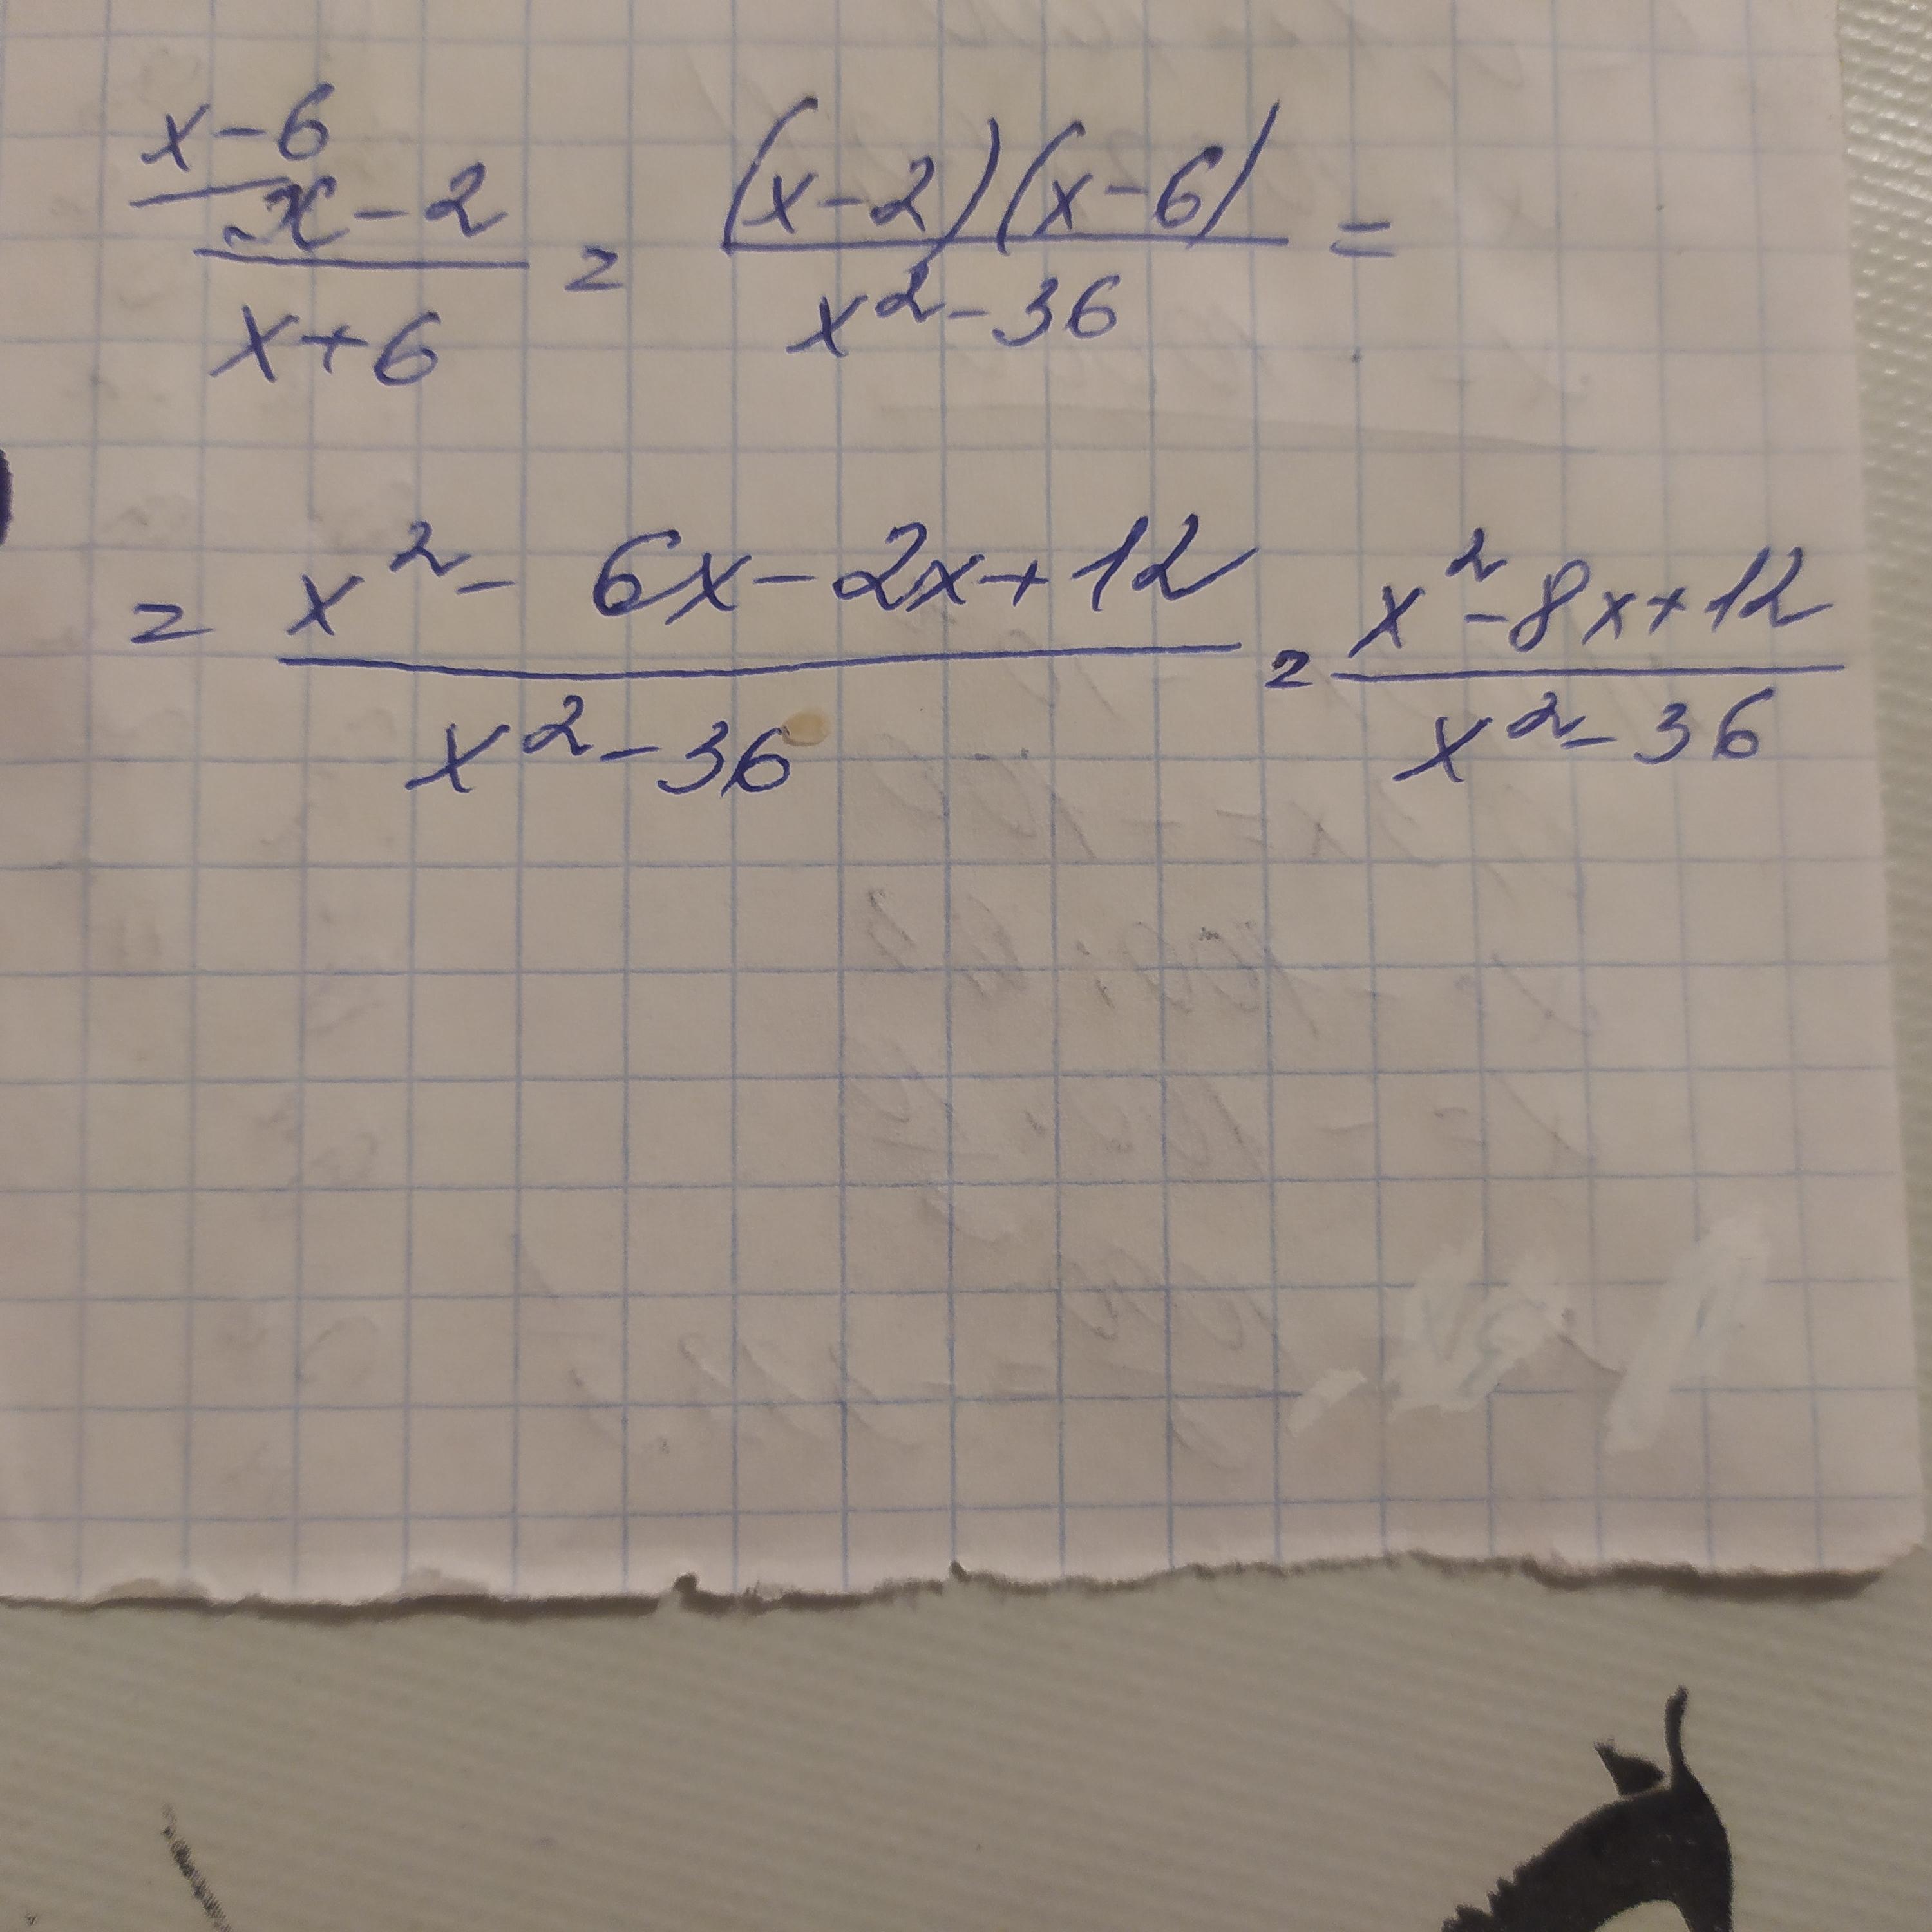 x-6
x-2/x+6 = (x-2)(x-6)/x²-36 =
= x²-6x-2x+12/x²-36 = x²-8x+12/x²-36